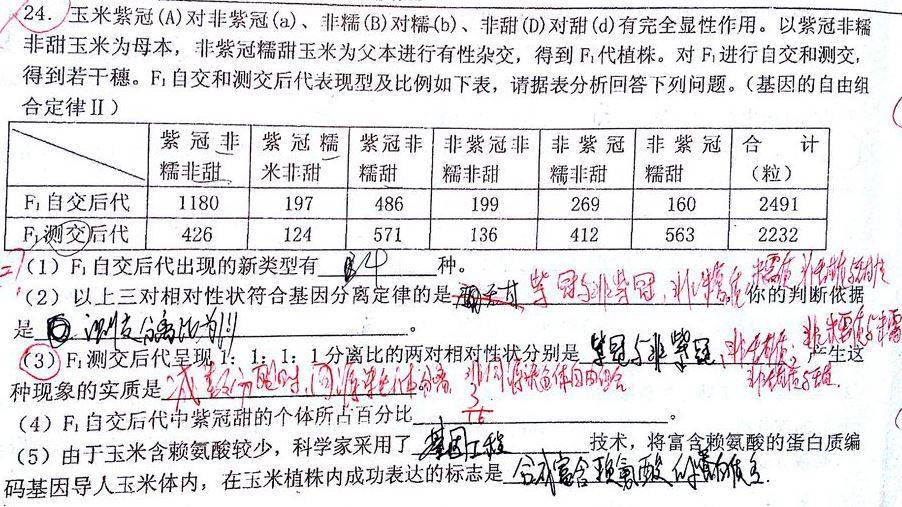 24. 玉米紫冠(A)对非紫冠(a)、非糯(B)对糯(b)、非甜(D)对甜(d)有完全显性作用。以紫冠非糯
非甜玉米为母本，非紫冠糯甜玉米为父本进行有性杂交，得到F₁代植株。对F₁进行自交和测交，
得到若干穗。F₁自交和测交后代表现型及比例如下表，请据表分析回答下列问题。（基因的自由组
合定律Ⅱ）
紫冠非糯非甜 紫冠糯米非甜 紫冠非糯甜 非紫冠非糯非甜 非紫冠糯非甜 非紫冠糯甜 合计（粒）
F₁自交后代 1180 197 486 199 269 160 2491
F₁测交后代 426 124 571 136 412 563 2232
（1）F₁自交后代出现的新类型有 4 种。
（2）以上三对相对性状符合基因分离定律的是 紫冠与非紫冠、 你的判断依据
是 测交分离比为1:1 。
（3）F₁测交后代呈现1：1：1：1分离比的两对相对性状分别是 紫冠与非紫冠, 产生这
种现象的实质是 减数分裂时,同源染色体分离,非同源染色体自由组合
（4）F₁自交后代中紫冠甜的个体所占百分比 3/16 。
（5）由于玉米含赖氨酸较少，科学家采用了 基因工程 技术，将富含赖氨酸的蛋白质编
码基因导人玉米体内，在玉米植株内成功表达的标志是 合成富含赖氨酸的蛋白质.